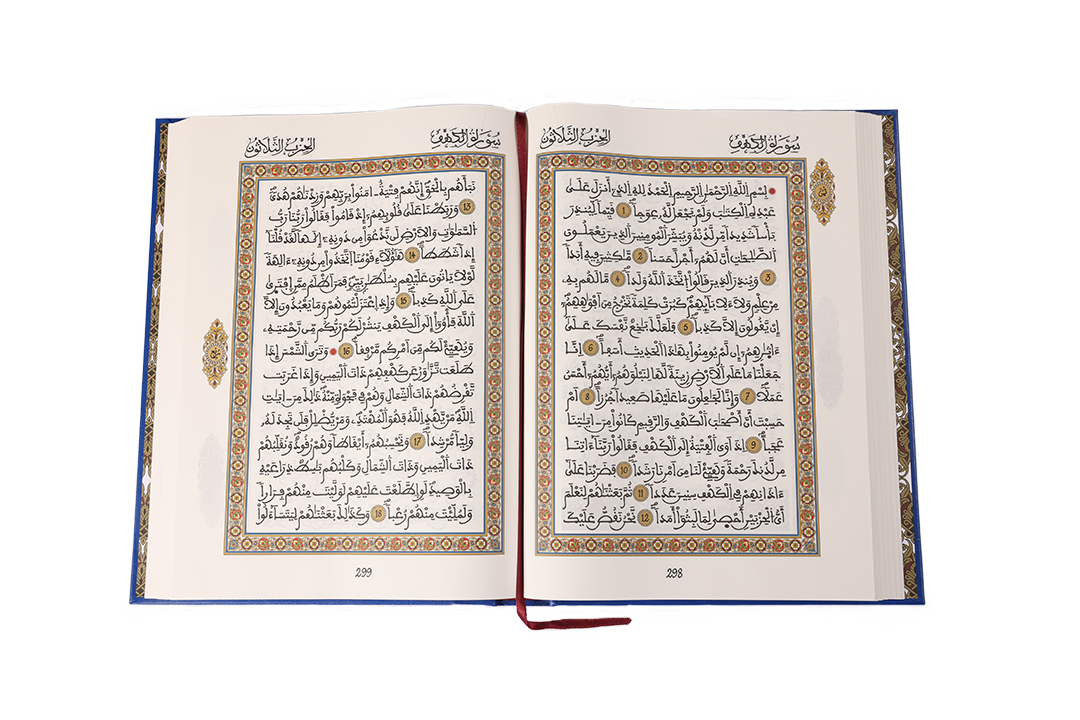 سورة الكهف
الحزب الثلاثون
بسم الله الرحمن الرحيم الحمد لله الذي أنزل على
عبده الكتاب ولم يجعل له عوجا 1 قيما لينذر
بأسا شديدا من لدنه ويبشر المومنين الذين يعملون
الصالحات أن لهم أجرا حسنا 2 ماكثين فيه أبدا
3 وينذر الذين قالوا اتخذ الله ولدا 4 ما لهم به
من علم ولا لآبائهم كبرت كلمة تخرج من أفواههم
إن يقولون إلا كذبا 5 فلعلك باخع نفسك على
آثارهم إن لم يومنوا بهذا الحديث أسفا 6 إنا
جعلنا ما على الأرض زينة لها لنبلوهم أيهم أحسن
عملا 7 وإنا لجاعلون ما عليها صعيدا جرزا 8 أم
حسبت أن أصحاب الكهف والرقيم كانوا من آياتنا
عجبا 9 إذ أوى الفتية إلى الكهف فقالوا ربنا آتنا
من لدنك رحمة وهيئ لنا من أمرنا رشدا 10 فضربنا على
آذانهم في الكهف سنين عددا 11 ثم بعثناهم لنعلم
أي الحزبين أحصى لما لبثوا أمدا 12 نحن نقص عليك
298
سورة الكهف
الحزب الثلاثون
نبأهم بالحق إنهم فتية آمنوا بربهم وزدناهم هدى
13 وربطنا على قلوبهم إذ قاموا فقالوا ربنا رب
السماوات والأرض لن ندعوا من دونه إلها لقد قلنا
إذا شططا 14 هؤلاء قومنا اتخذوا من دونه آلهة
لولا ياتون عليهم بسلطان بين فمن أظلم ممن افترى
على الله كذبا 15 وإذ اعتزلتموهم وما يعبدون إلا
الله فأووا إلى الكهف ينشر لكم ربكم من رحمته
ويهيئ لكم من أمركم مرفقا 16 وترى الشمس إذا
طلعت تزاور عن كهفهم ذات اليمين وإذا غربت
تقرضهم ذات الشمال وهم في فجوة منه ذلك من آيات
الله من يهد الله فهو المهتد ومن يضلل فلن تجد له
وليا مرشدا 17 وتحسبهم أيقاظا وهم رقود ونقلبهم
ذات اليمين وذات الشمال وكلبهم باسط ذراعيه
بالوصيد لو اطلعت عليهم لوليت منهم فرارا
ولملئت منهم رعبا 18 وكذلك بعثناهم ليتساءلوا
299